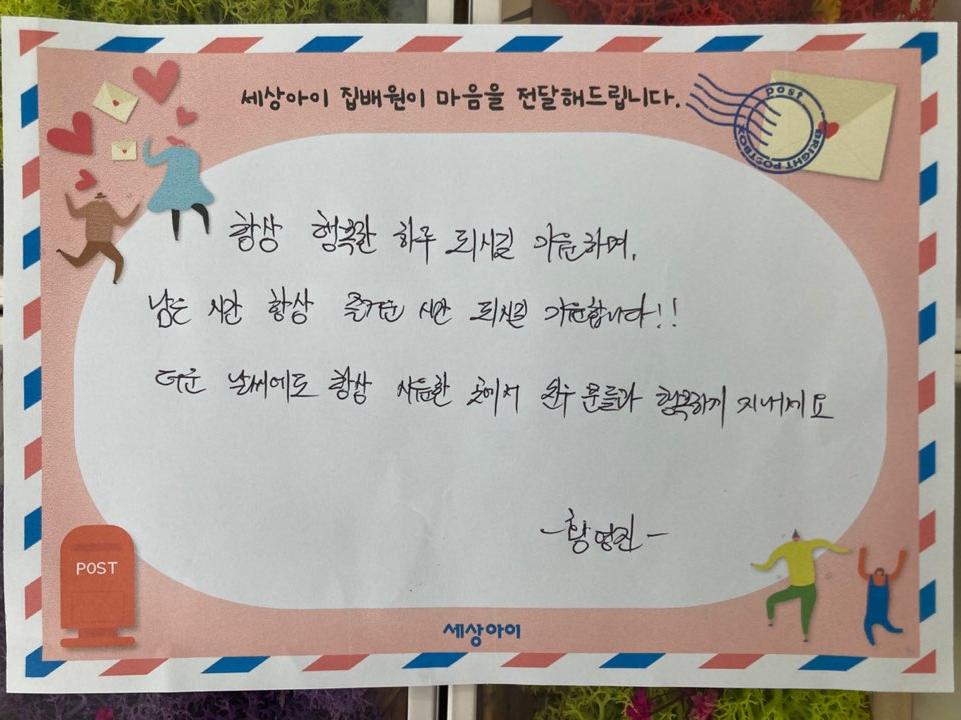 세상아이 집배원이 마음을 전달해드립니다.
post
BRIGHT POSTBOX
항상 행복한 하루 되시길 기원하며,
남은 시간 항상 즐거운 시간 되시길 기원합니다!!
더운 날씨에도 항상 시원한 곳에서 친구분들과 행복하게 지내세요
-황영진-
POST
세상아이